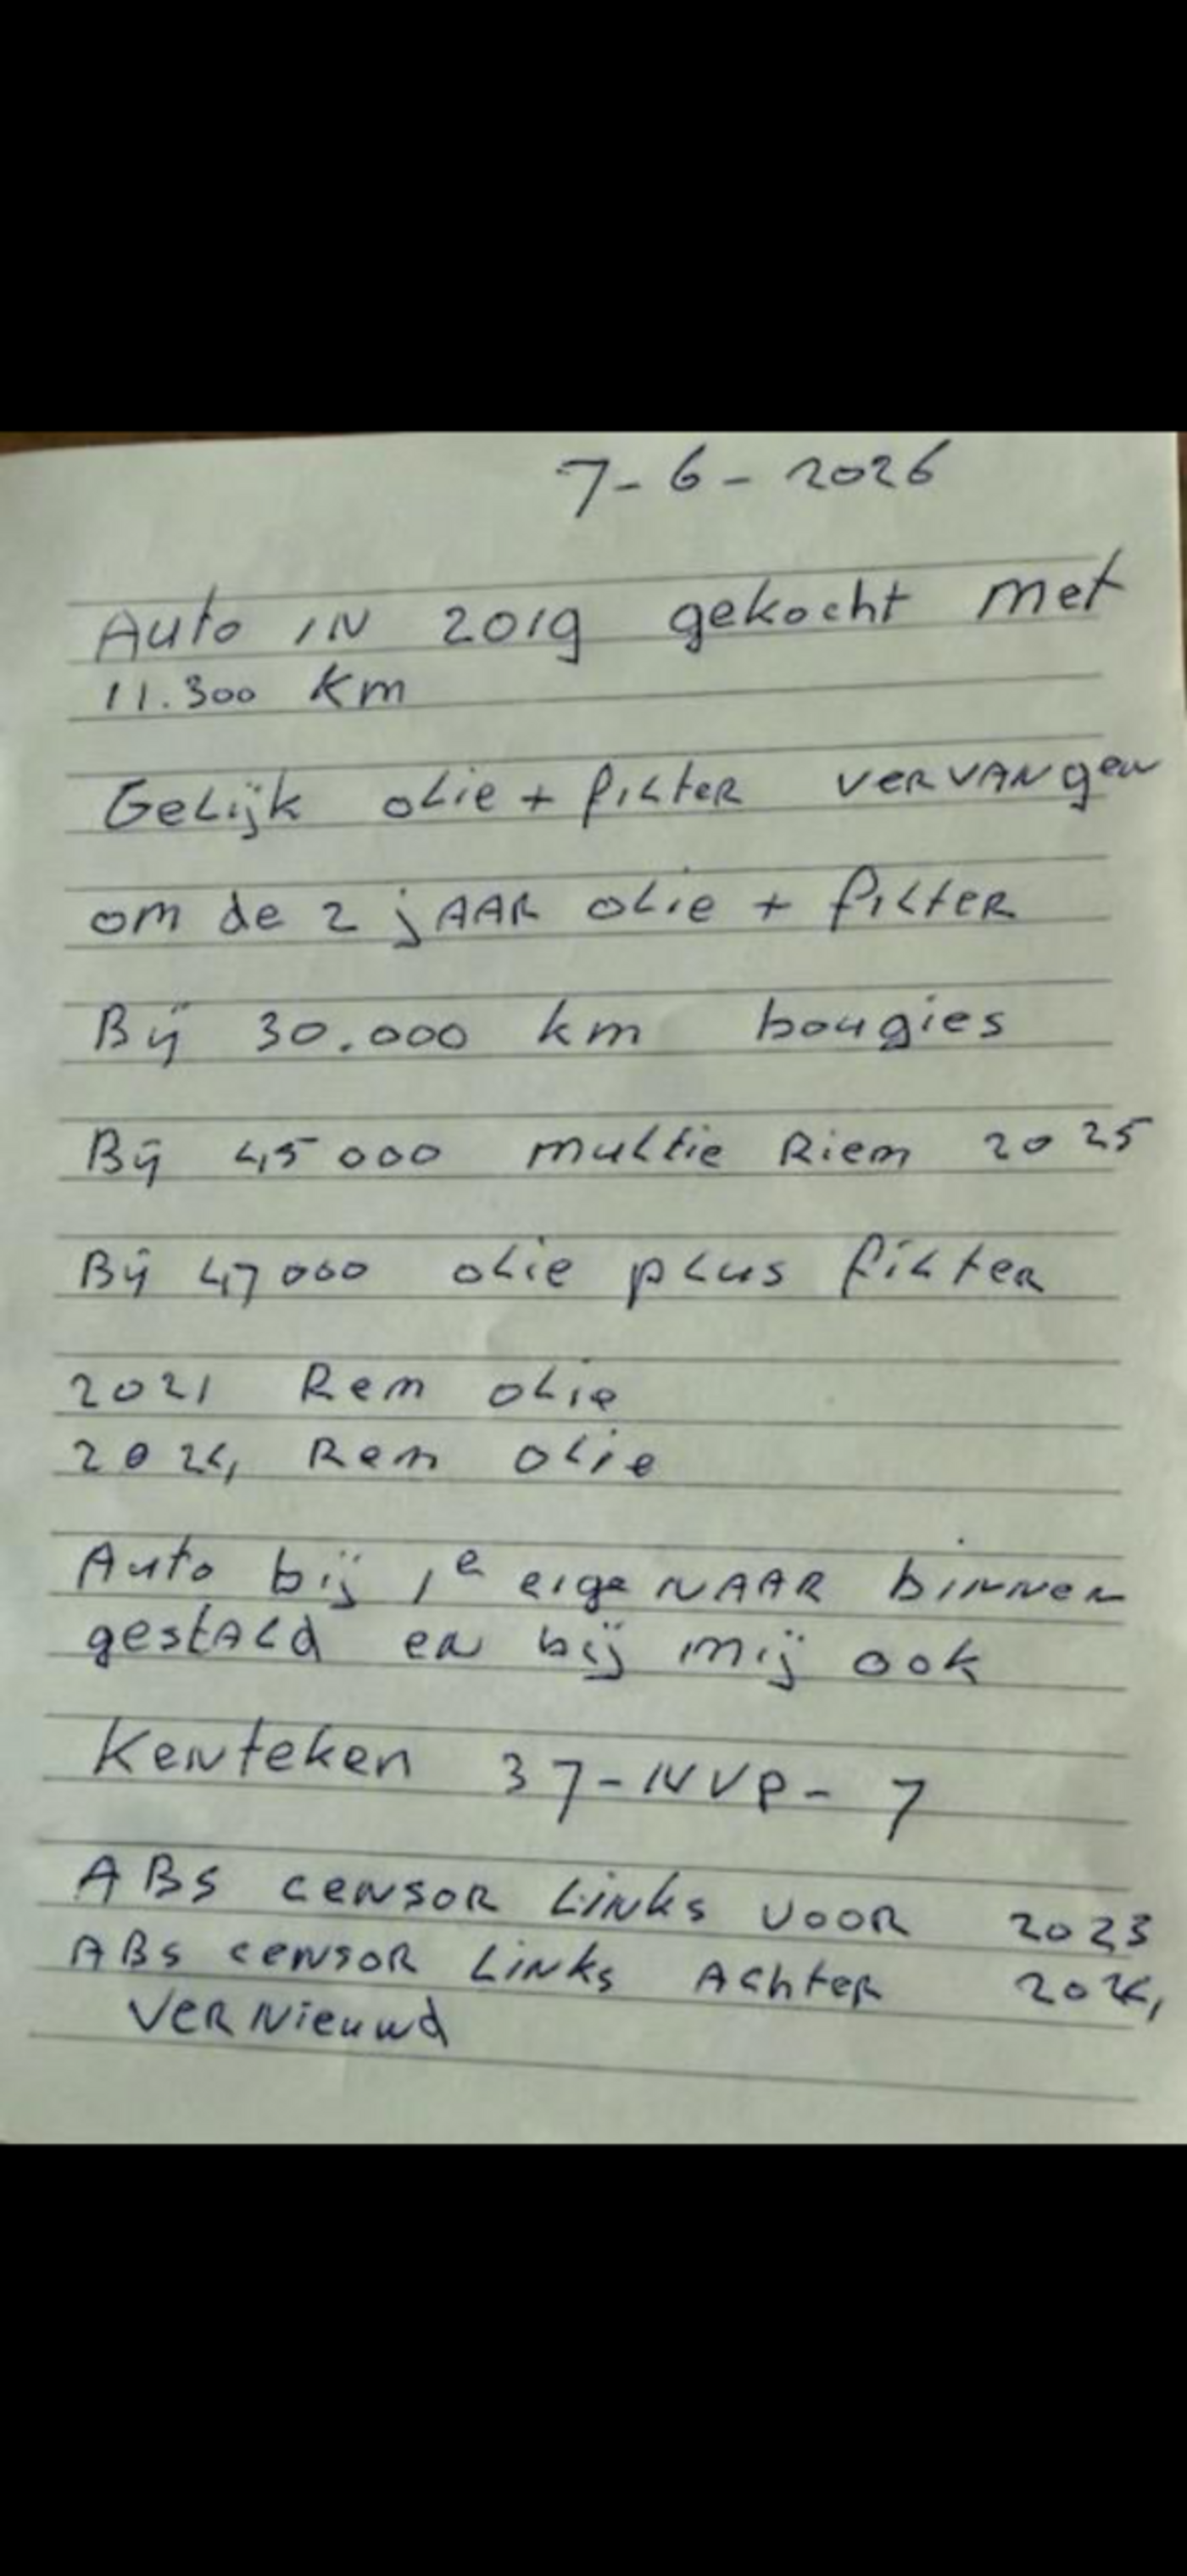 7-6-2026
Auto IN 2019 gekocht met
11.300 km
Gelijk olie + filter vervangen
om de 2 jAAR olie + filter
Bij 30.000 km bougies
Bij 45000 multie Riem 2025
Bij 47000 olie plus filter
2021 Rem olie
2024 Rem olie
Auto bij 1e eigenAAR binnen
gestald en bij mij ook
Kenteken 37-NVP-7
ABS censor Links voor 2023
ABS censor Links Achter 2024
verNieuwd